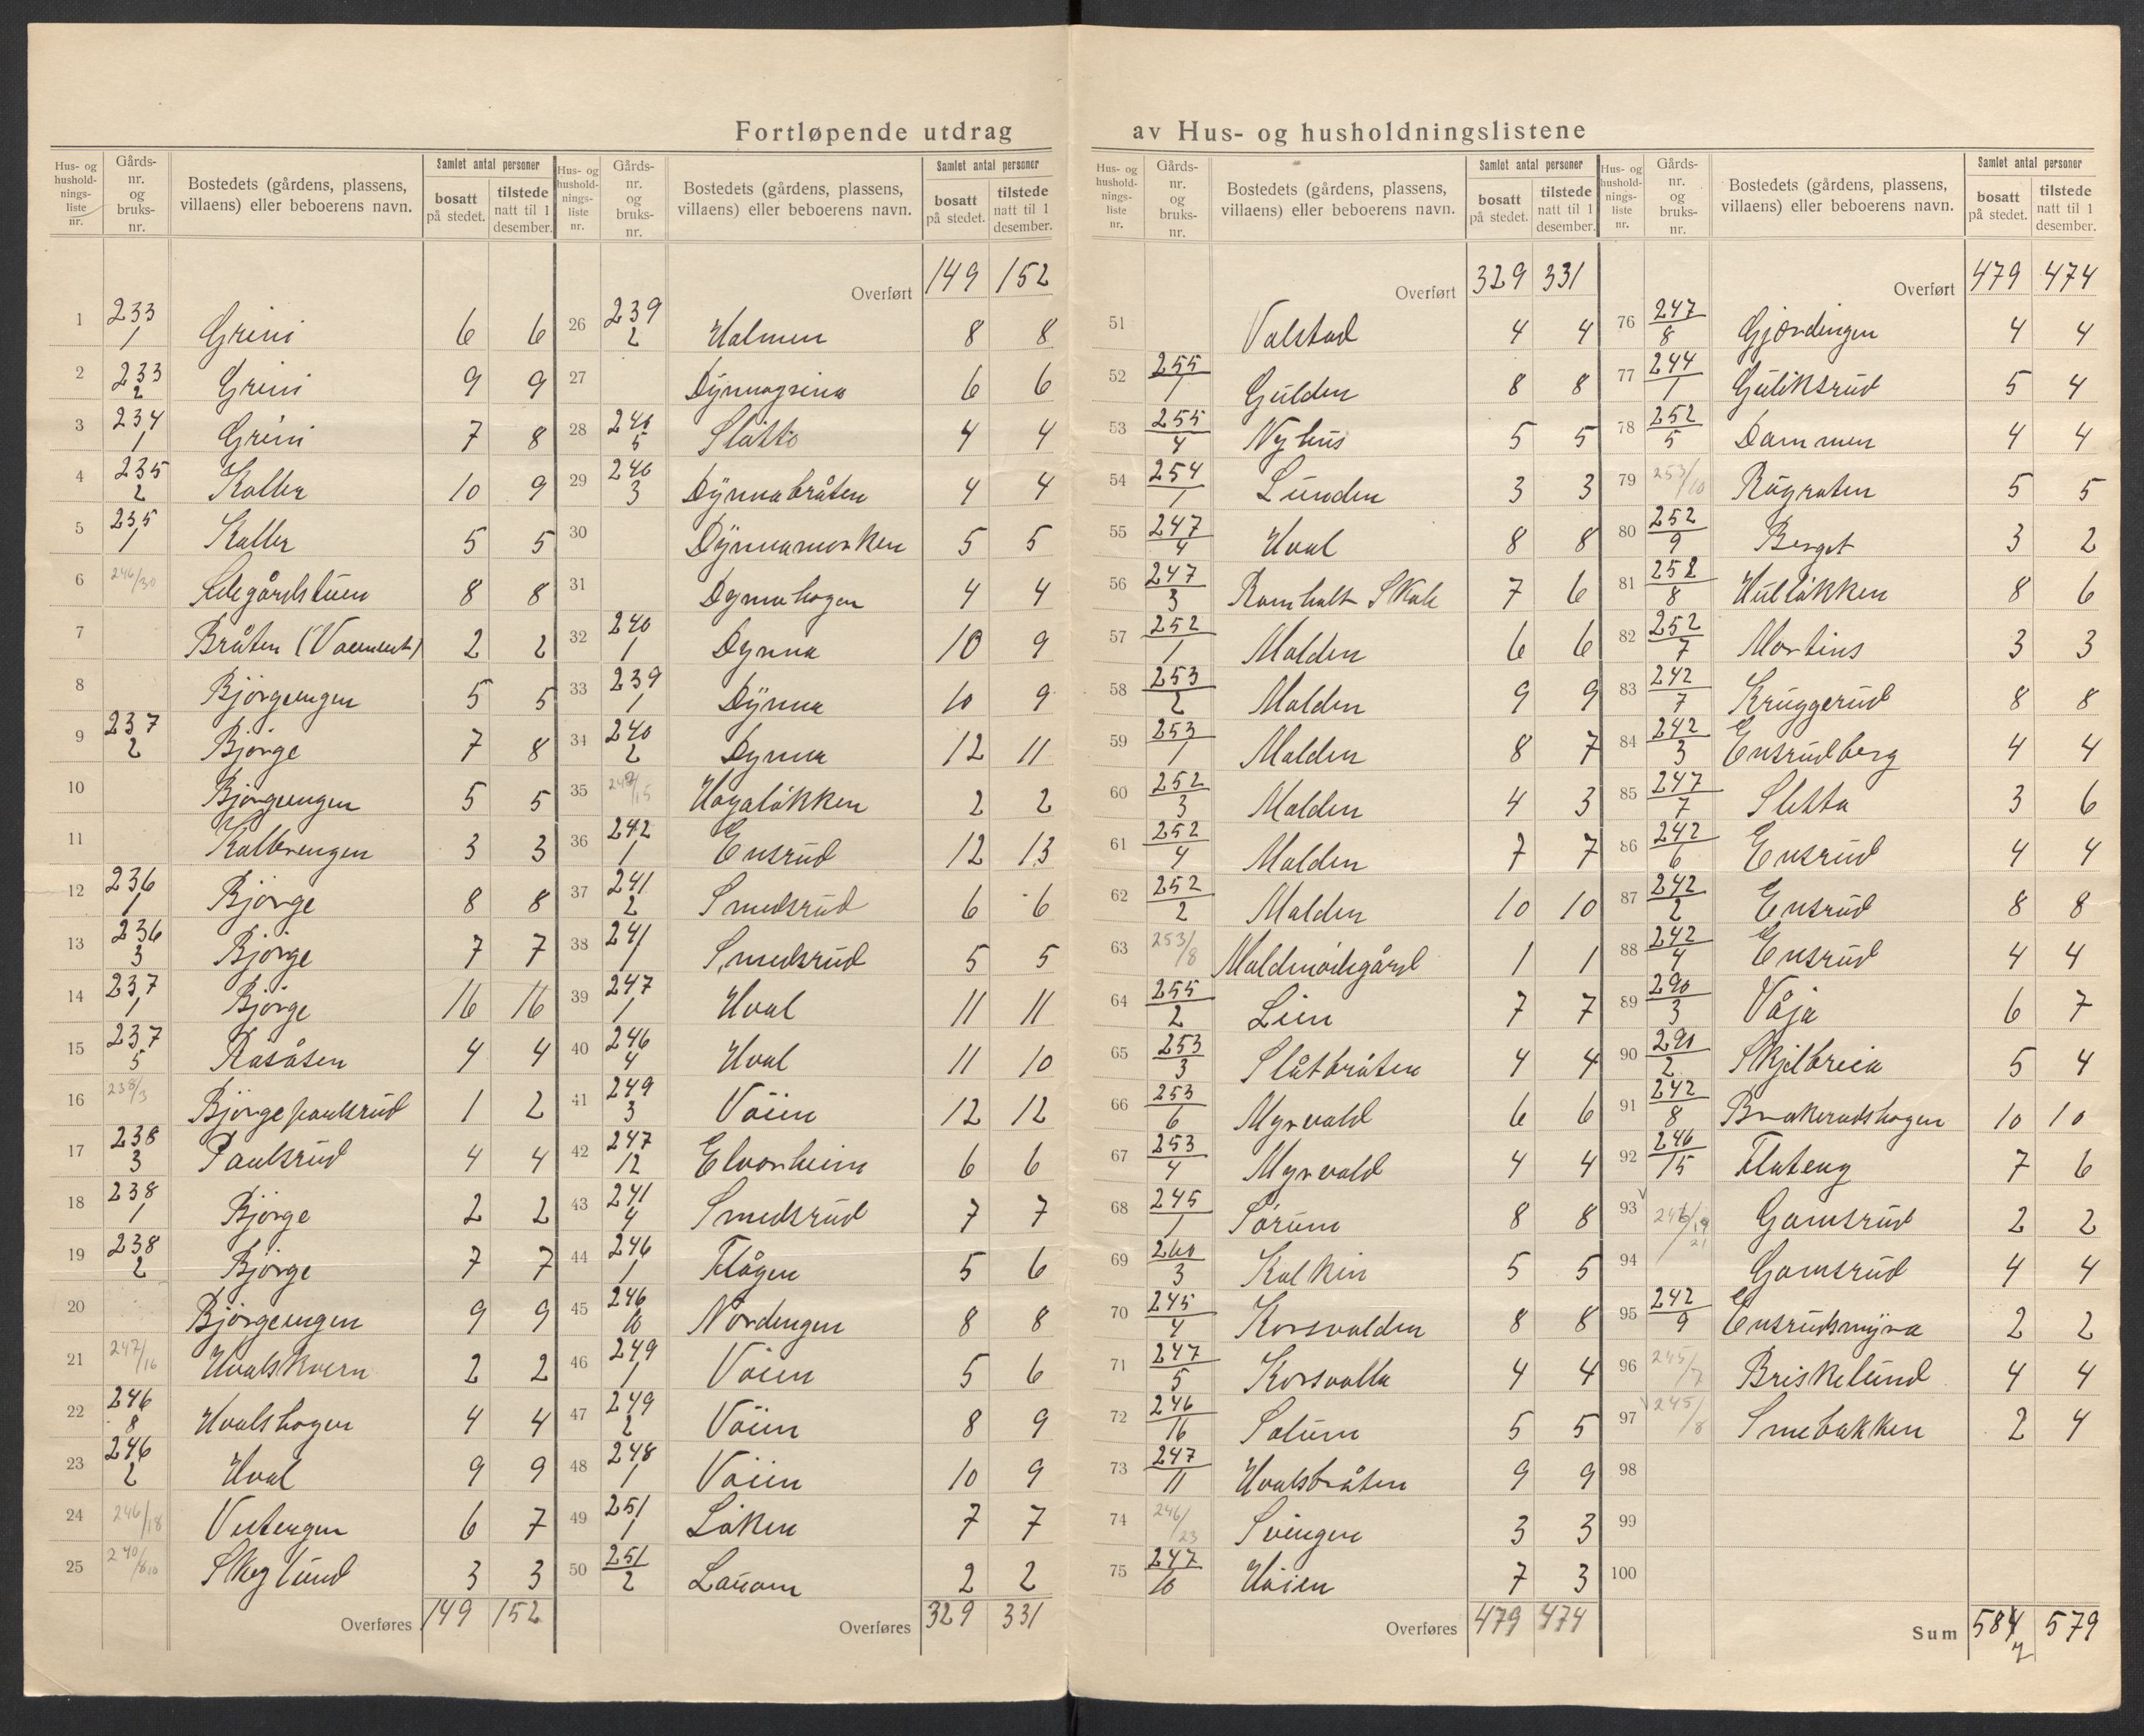 Fortløpende utdrag av Hus- og husholdningslistene
Hus- og husholdningsliste nr. | Gårdsnr. og bruksnr. | Bostedets (gårdens, plassens, villaens) eller beboerens navn. | Samlet antal personer bosatt på stedet. | tilstede natt til 1 desember.
1 233/1 Grini 6 6
2 233/2 Grini 9 9
3 234/1 Grini 7 8
4 235/2 Kolbr 10 9
5 235/1 Kolbr 5 5
6 246/30 8 8
7 Bråten 2 2
8 Bjørgeengen 5 5
9 237/2 Bjørge 7 8
10 Bjørgeengen 5 5
11 Kolbrengen 3 3
12 236/1 Bjørge 8 8
13 236/3 Bjørge 7 7
14 237/1 Bjørge 16 16
15 237/5 Råsåsen 4 4
16 238/3 Bjørgepaulsrud 1 2
17 238/3 Paulsrud 4 4
18 238/1 Bjørge 2 2
19 238/2 Bjørge 7 7
20 Bjørgeengen 9 9
21 247/16 Hvalskvern 2 2
22 246/8 Hvalshagen 4 4
23 246/2 Hval 9 9
24 246/18 Vestengen 6 7
25 Skoglund 3 3
Overføres 149 152
Overført 149 152
26 239/2 Holmen 8 8
27 Dynnagrina 6 6
28 240/5 Slåtto 4 4
29 240/3 Dynnabråten 4 4
30 Dynnamarken 5 5
31 Dynnahagen 4 4
32 240/1 Dynna 10 9
33 239/1 Dynna 10 9
34 240/2 Dynna 12 11
35 Hagaløkken 2 2
36 242/1 Ensrud 12 13
37 241/2 Smedsrud 6 6
38 241/1 Smedsrud 5 5
39 247/1 Hval 11 11
40 246/4 Hval 11 10
41 249/3 Vøien 12 12
42 247/12 Elvarheim 6 6
43 241/4 Smedsrud 7 7
44 246/1 Flågen 5 6
45 246/10 Nordengen 8 8
46 249/1 Vøien 5 6
47 249/2 Vøien 8 9
48 248/1 Vøien 10 9
49 251/1 Løken 7 7
50 251/2 2 2
Overføres 329 331
Overført 329 331
51 Volstad 4 4
52 255/1 Gulden 8 8
53 255/4 Nyhus 5 5
54 254/1 Lunden 3 3
55 247/4 Hval 8 8
56 247/3 Ramhalt Skole 7 6
57 252/1 Molden 6 6
58 253/2 Molden 9 9
59 253/1 Molden 8 7
60 252/3 Molden 4 3
61 252/4 Molden 7 7
62 252/2 Molden 10 10
63 253/8 Moldenødegård 1 1
64 255/2 Lien 7 7
65 253/3 Slåtbråten 4 4
66 253/6 Myrvold 6 6
67 253/4 Myrvold 4 4
68 245/1 Sørum 8 8
69 260/3 Kalkin 5 5
70 245/4 Korsvolden 8 8
71 247/5 Korsvolla 4 4
72 246/16 Solum 5 5
73 247/11 Hvalsbråten 9 9
74 246/23 Svingen 3 3
75 247/10 Høien 7 3
Overføres 479 474
Overført 479 474
76 247/8 Gjordingen 4 4
77 244/1 Guliksrud 5 4
78 252/5 Dammen 4 4
79 253/10 Rugraten 5 5
80 252/9 Berget 3 2
81 252/8 Hulløkken 8 6
82 252/7 Mortins 3 3
83 242/7 Kruggerud 8 8
84 242/3 Ensrudberg 4 4
85 247/7 Sletta 3 6
86 242/6 Ensrud 4 4
87 242/2 Ensrud 8 8
88 242/4 Ensrud 4 4
89 290/3 Våja 6 7
90 290/2 Skjelbreia 5 4
91 242/8 Brakerudshagen 10 10
92 246/15 Flateng 7 6
93 246/19 21 Gamsrud 2 2
94 Gamsrud 4 4
95 242/9 Ensrudsmyra 2 2
96 245/7 Briskelund 4 4
97 245/8 Smebakken 2 4
98
99
100
Sum 584 579